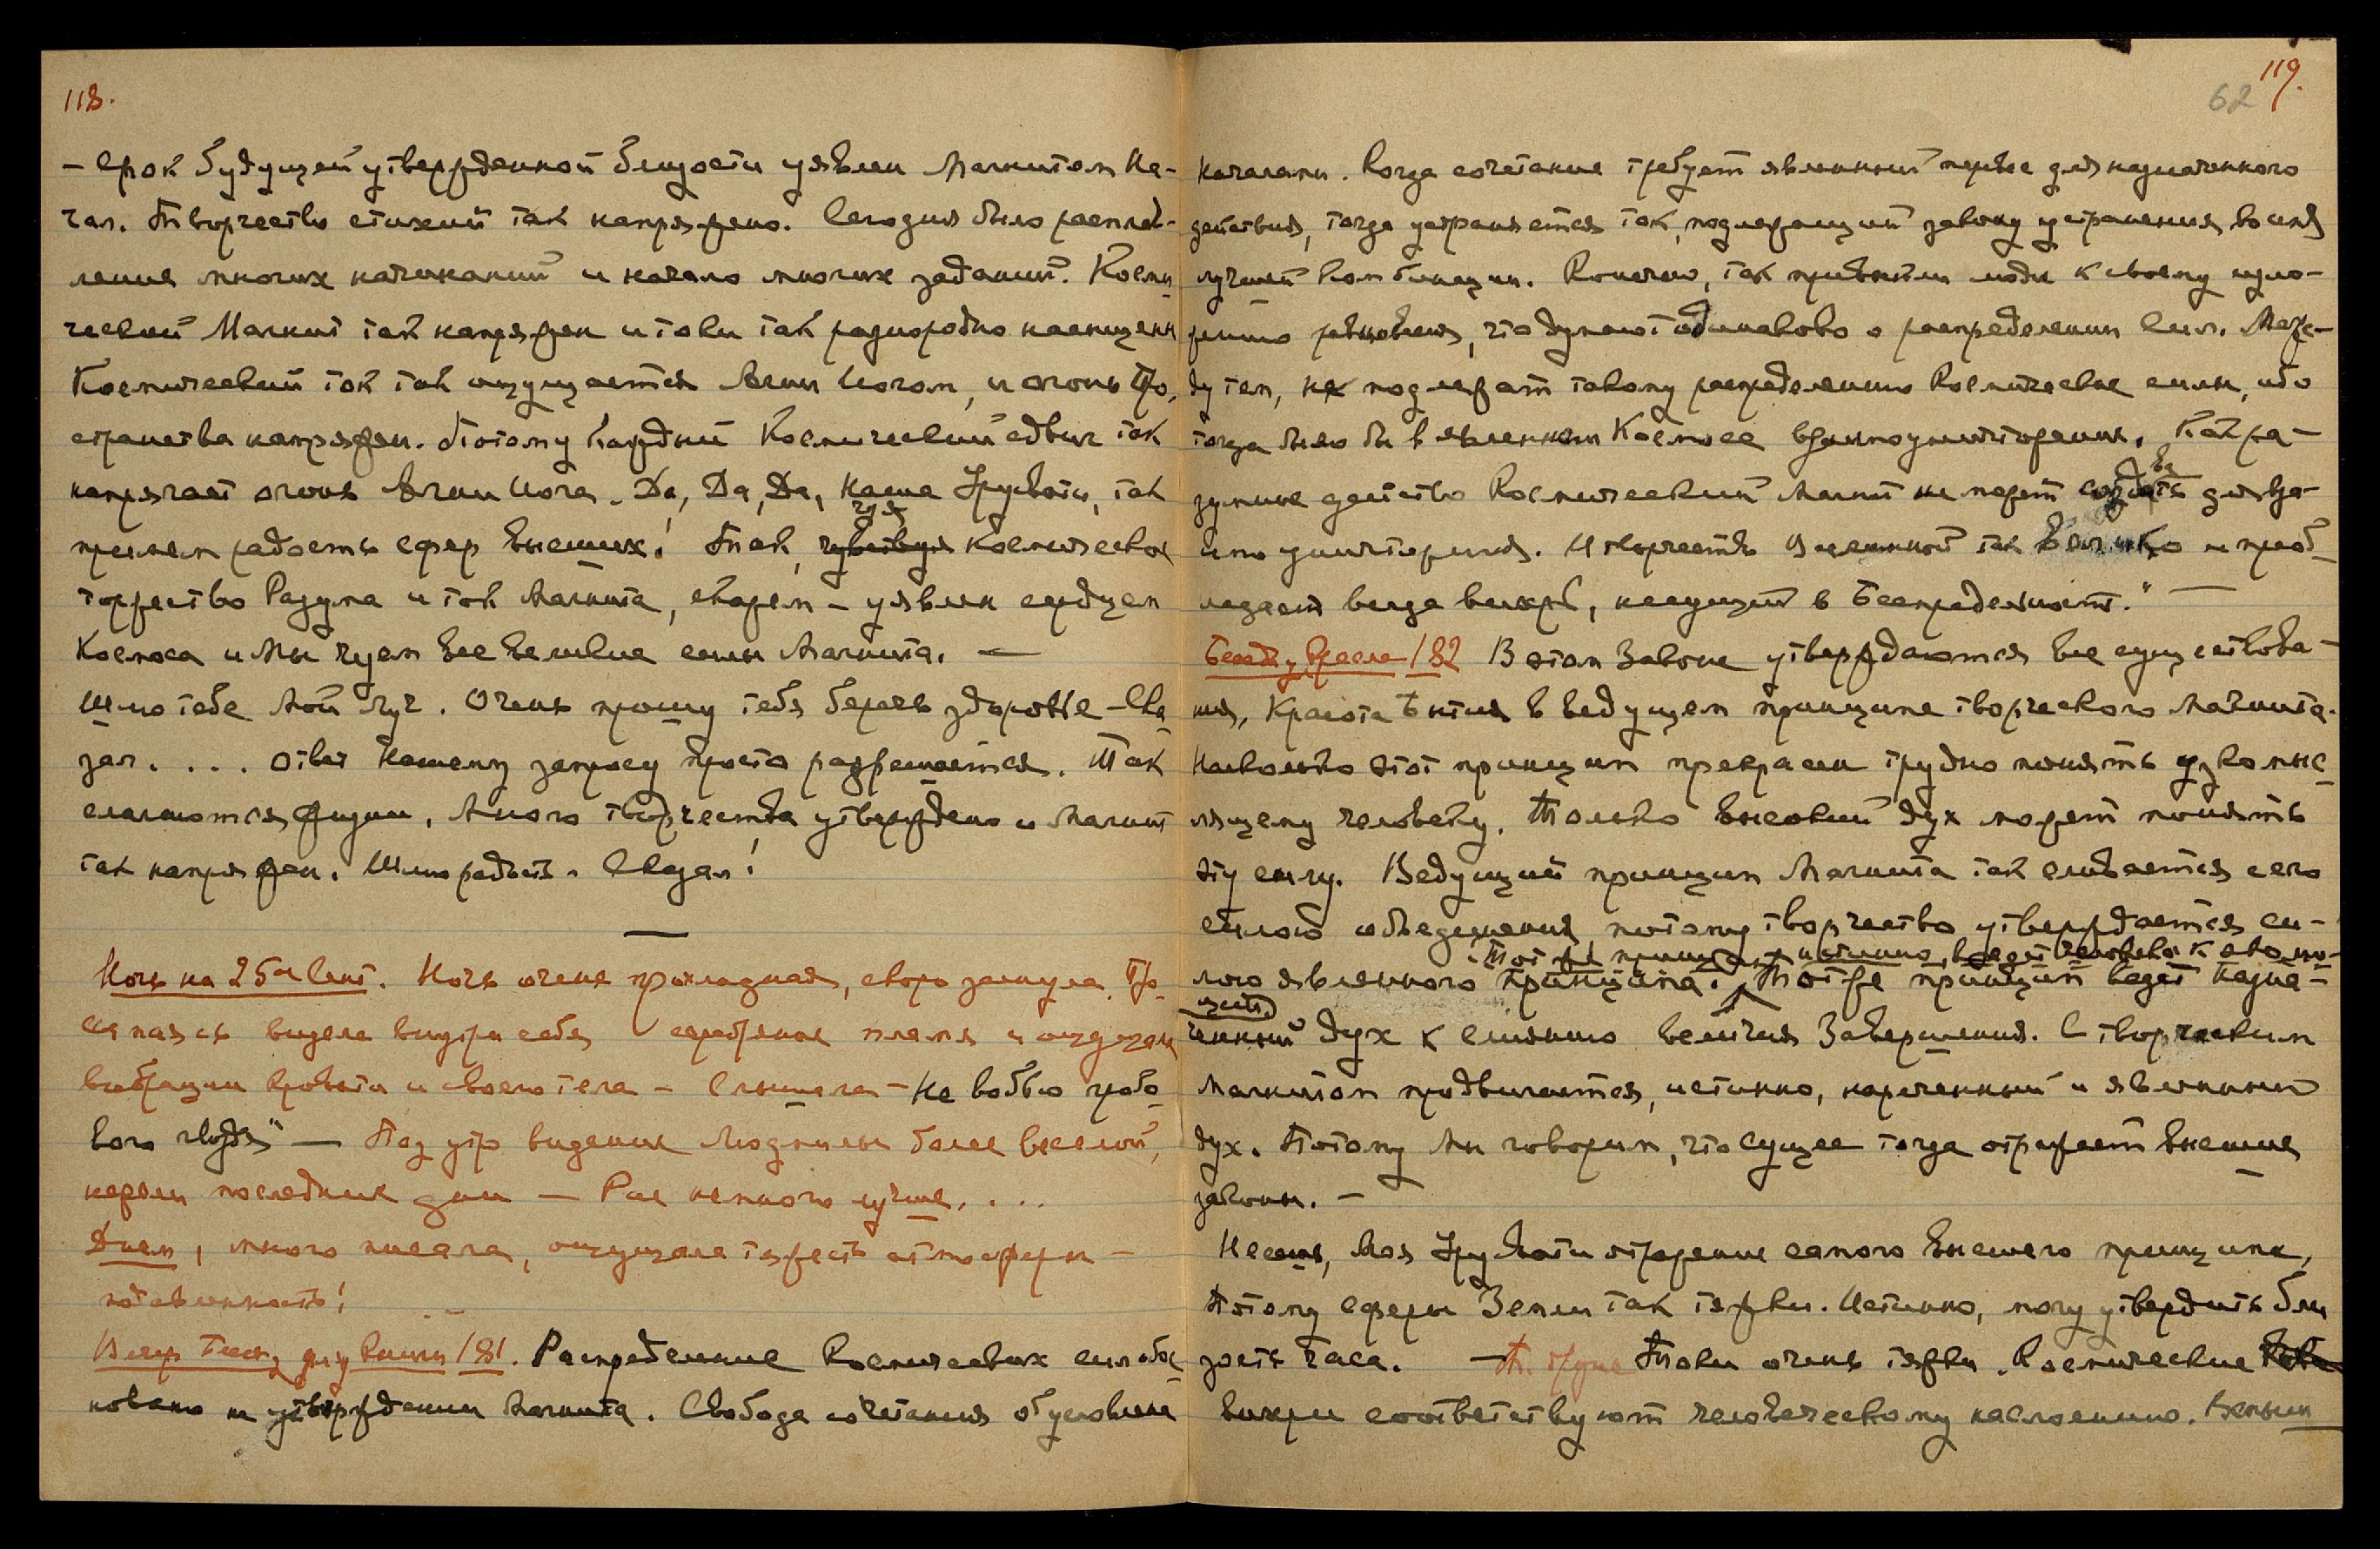 118.
– Срок будущей утвержденной близости уявлен Магнитом На-
чал. Творчество стихий так напряжено. Сегодня было расплав-
ление многих начинаний и начало многих заданий. Косми
ческий Магнит так напряжен и токи так разнородно насыщены
Космический ток так ощущается Агни Йогом, и огонь Про,
странства напряжен. Потому каждый Космический сдвиг так
напрягает огонь Агни Йога. Да, Да, Да, Наша Урусвати, так
примем радость сфер высших! Так, чуя Космическое
торжество Разума и ток Магнита, скажем – уявлен сердцем
Космоса и Мы чуем все великие силы Магнита. —
Шлю тебе Мой Луч. Очень прошу тебя беречь здоровье – Ска
зал. . . . Ответ Нашему запросу просто разрешается. Так
слагаются жизни, много творчества утверждено и Магнит
так напряжен. Шлю радость. Сказал!
—
Ночь на 25ое Сент. Ночь очень прохладная, скоро заснула. Про
сыпаясь видела внутри себя серебряное пламя и ощущала
вибрации кровати и своего тела – Слышала – Не вобью гробо
вого гвоздя" — Под утро видение Людмилы более веселой,
нежели последние дни — Рае немного лучше. . . .
Днем, много писала, ощущала тяжесть атмосферы –
подавленность! –
Вечер Бесед. 181. Распределение Космических сил обос
новано на утверждении Магнита. Свобода сочетания обусловлена
119.
62
Началами. Когда сочетание требует явленный первое для назначенного
действия, тогда устраняется ток, подлежащий закону устранения во имя
лучшей комбинации. Конечно, так привыкли люди к своему
что думают одинаково о распределении сил. Меж-
ду тем, не подлежат такому распределению Космические силы, ибо
тогда было бы в явленном Космосе взаимоуничтожение. Как ра-
зумное действо Космический Магнит не может создавать для вза-
имо уничтожения. И творчество Вселенной так велико и преоб
ладает всегда вихрь, несущий в Беспредельность." —
Беседа 182 В этом Законе утверждаются все существова-
ния, Красота Бытия в ведущем принципе творческого Магнита.
Насколько этот принцип прекрасен трудно понять узко мыс
лящему человеку. Только высокий дух может понять
эту силу. Ведущий принцип Магнита так сливается с его
силою объединения потому творчество утверждается си-
Тот же принцип, истинно, ведет человека к явлению
лою явленного Принципа. Тот же принцип ведет назна-
ченный дух к слиянию величия Завершения. С творческим
Магнитом продвигается, истинно, нареченный и явленный
дух. Потому Мы говорим, что Сущее тогда отражает высшие
законы. –
Несешь, Моя Урусвати отражение самого высшего принципа,
Потому сферы Земли так тяжки. Истинно, могу утвердить бли
зость часа. – Токи очень тяжки. Космические
вихри соответствуют человеческому наслоению.